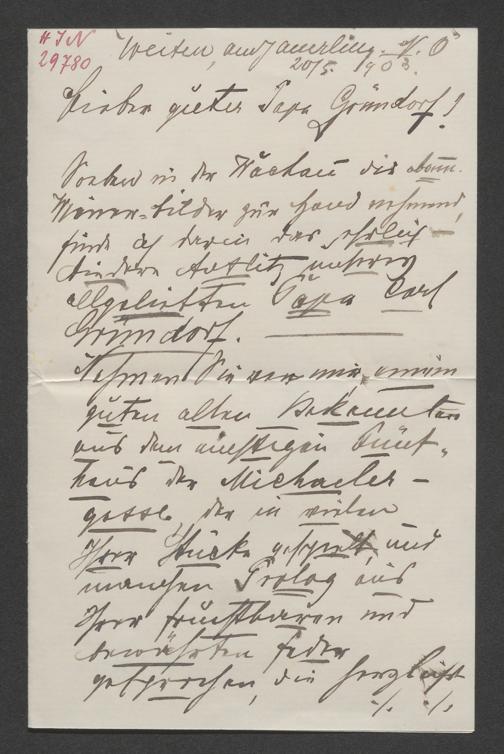 HIN
29780
Weiten, am Jauerling. N. Ö
20/5. 1903.
Lieber guter Papa Gründorf!
Soeben in der Wachau die abonn.
Wiener-Bilder zur Hand nehmend,
finde ich darin das ehrlich
biedere Antlitz unseres
allgeliebten Papa Carl
Gründorf.
Nehmen Sie von mir, einem
guten alten Bekannten
aus dem einstigen
haus der Michaeler-
gasse, der in vielen
Ihrer Stücke gespielt, und
manchen Prolog aus
Ihrer fruchtbaren und
bewährten Feder
gesprochen, die herzlichst
./. ./.